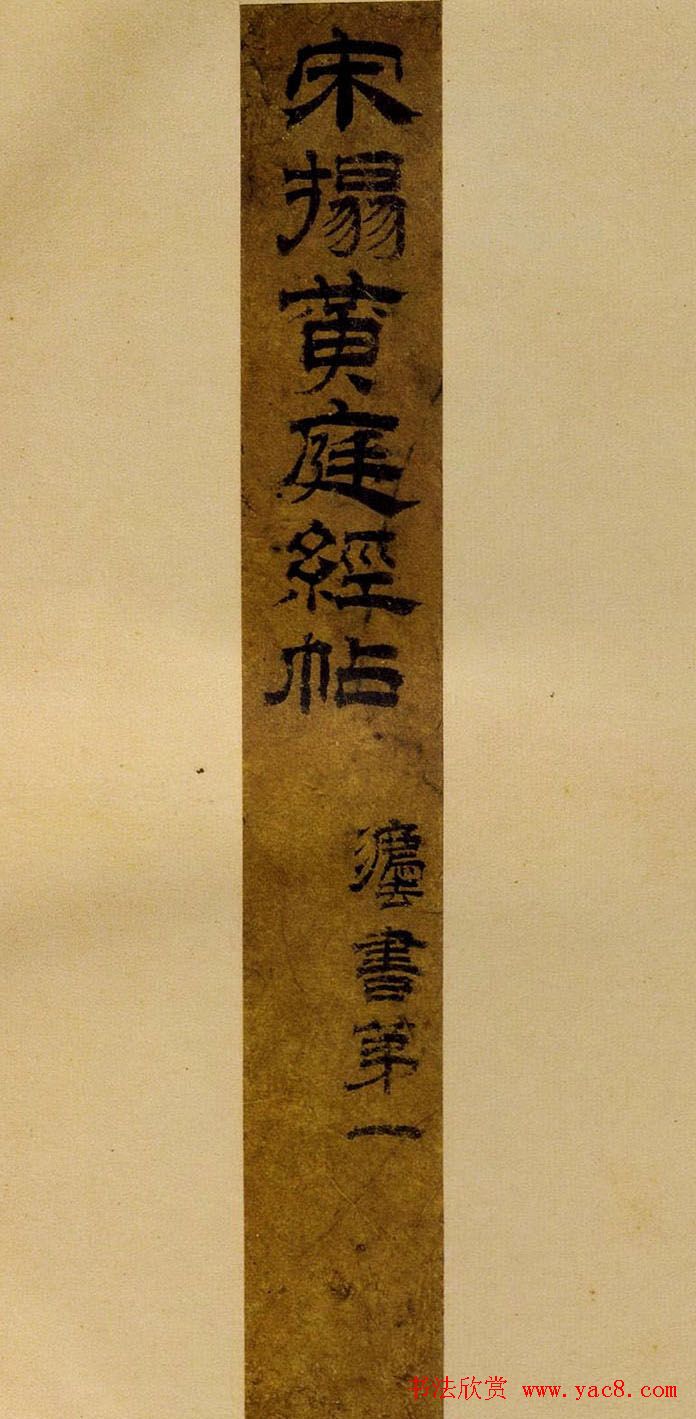 宋搨黄庭經帖
書第一
书法欣赏 www.yac8.com